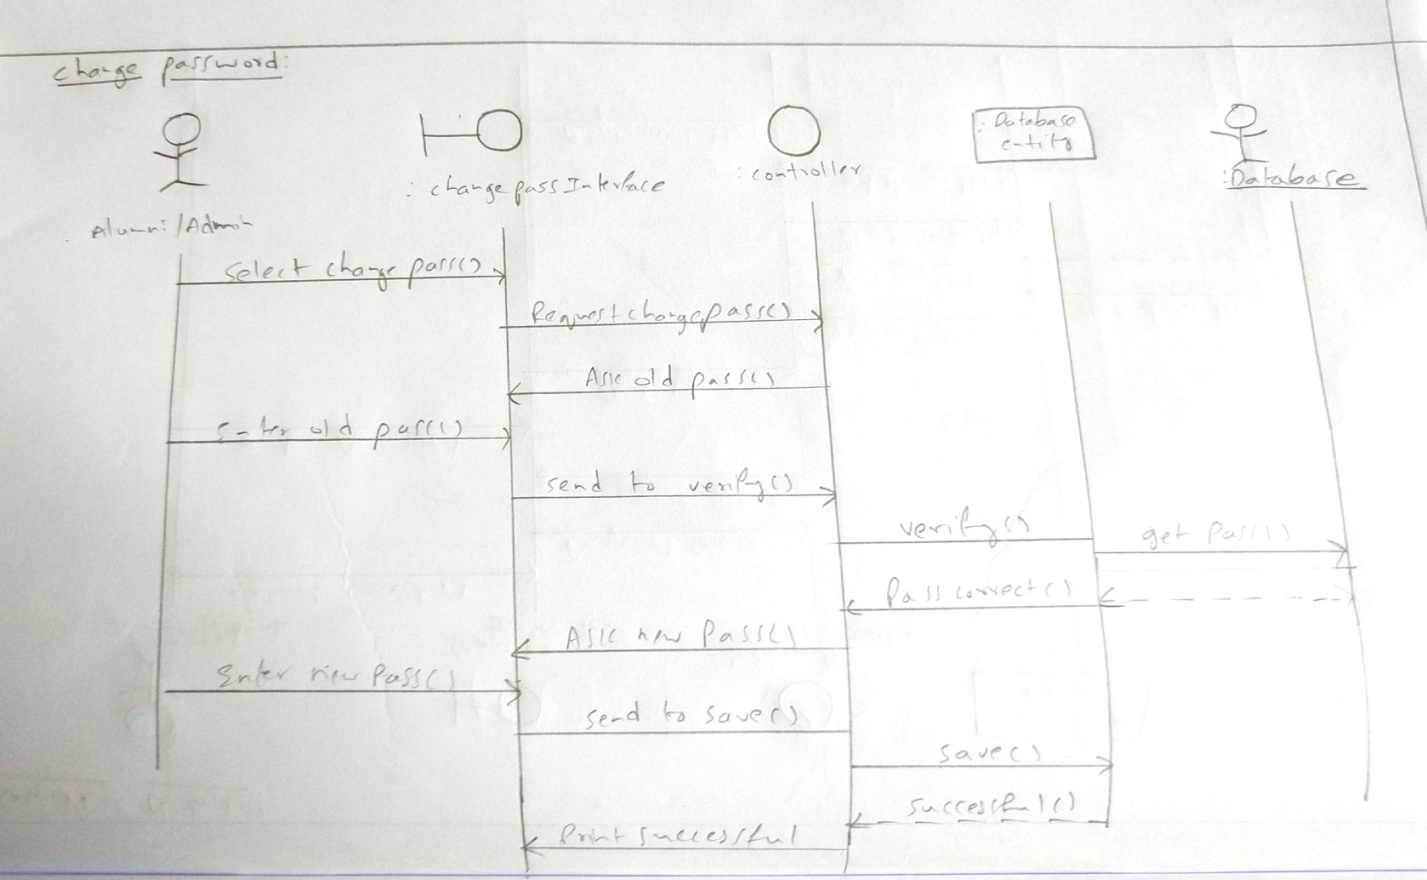 change password:
: Database
entity
: controller
: Database
: changepassInterface
: Alumni/Admin
select change pass()
Request changepass()
Ask old pass()
Enter old pass()
send to verify()
verify()
get Pass()
Pass correct()
Ask new Pass()
Enter new Pass()
send to save()
save()
successful()
Print successful